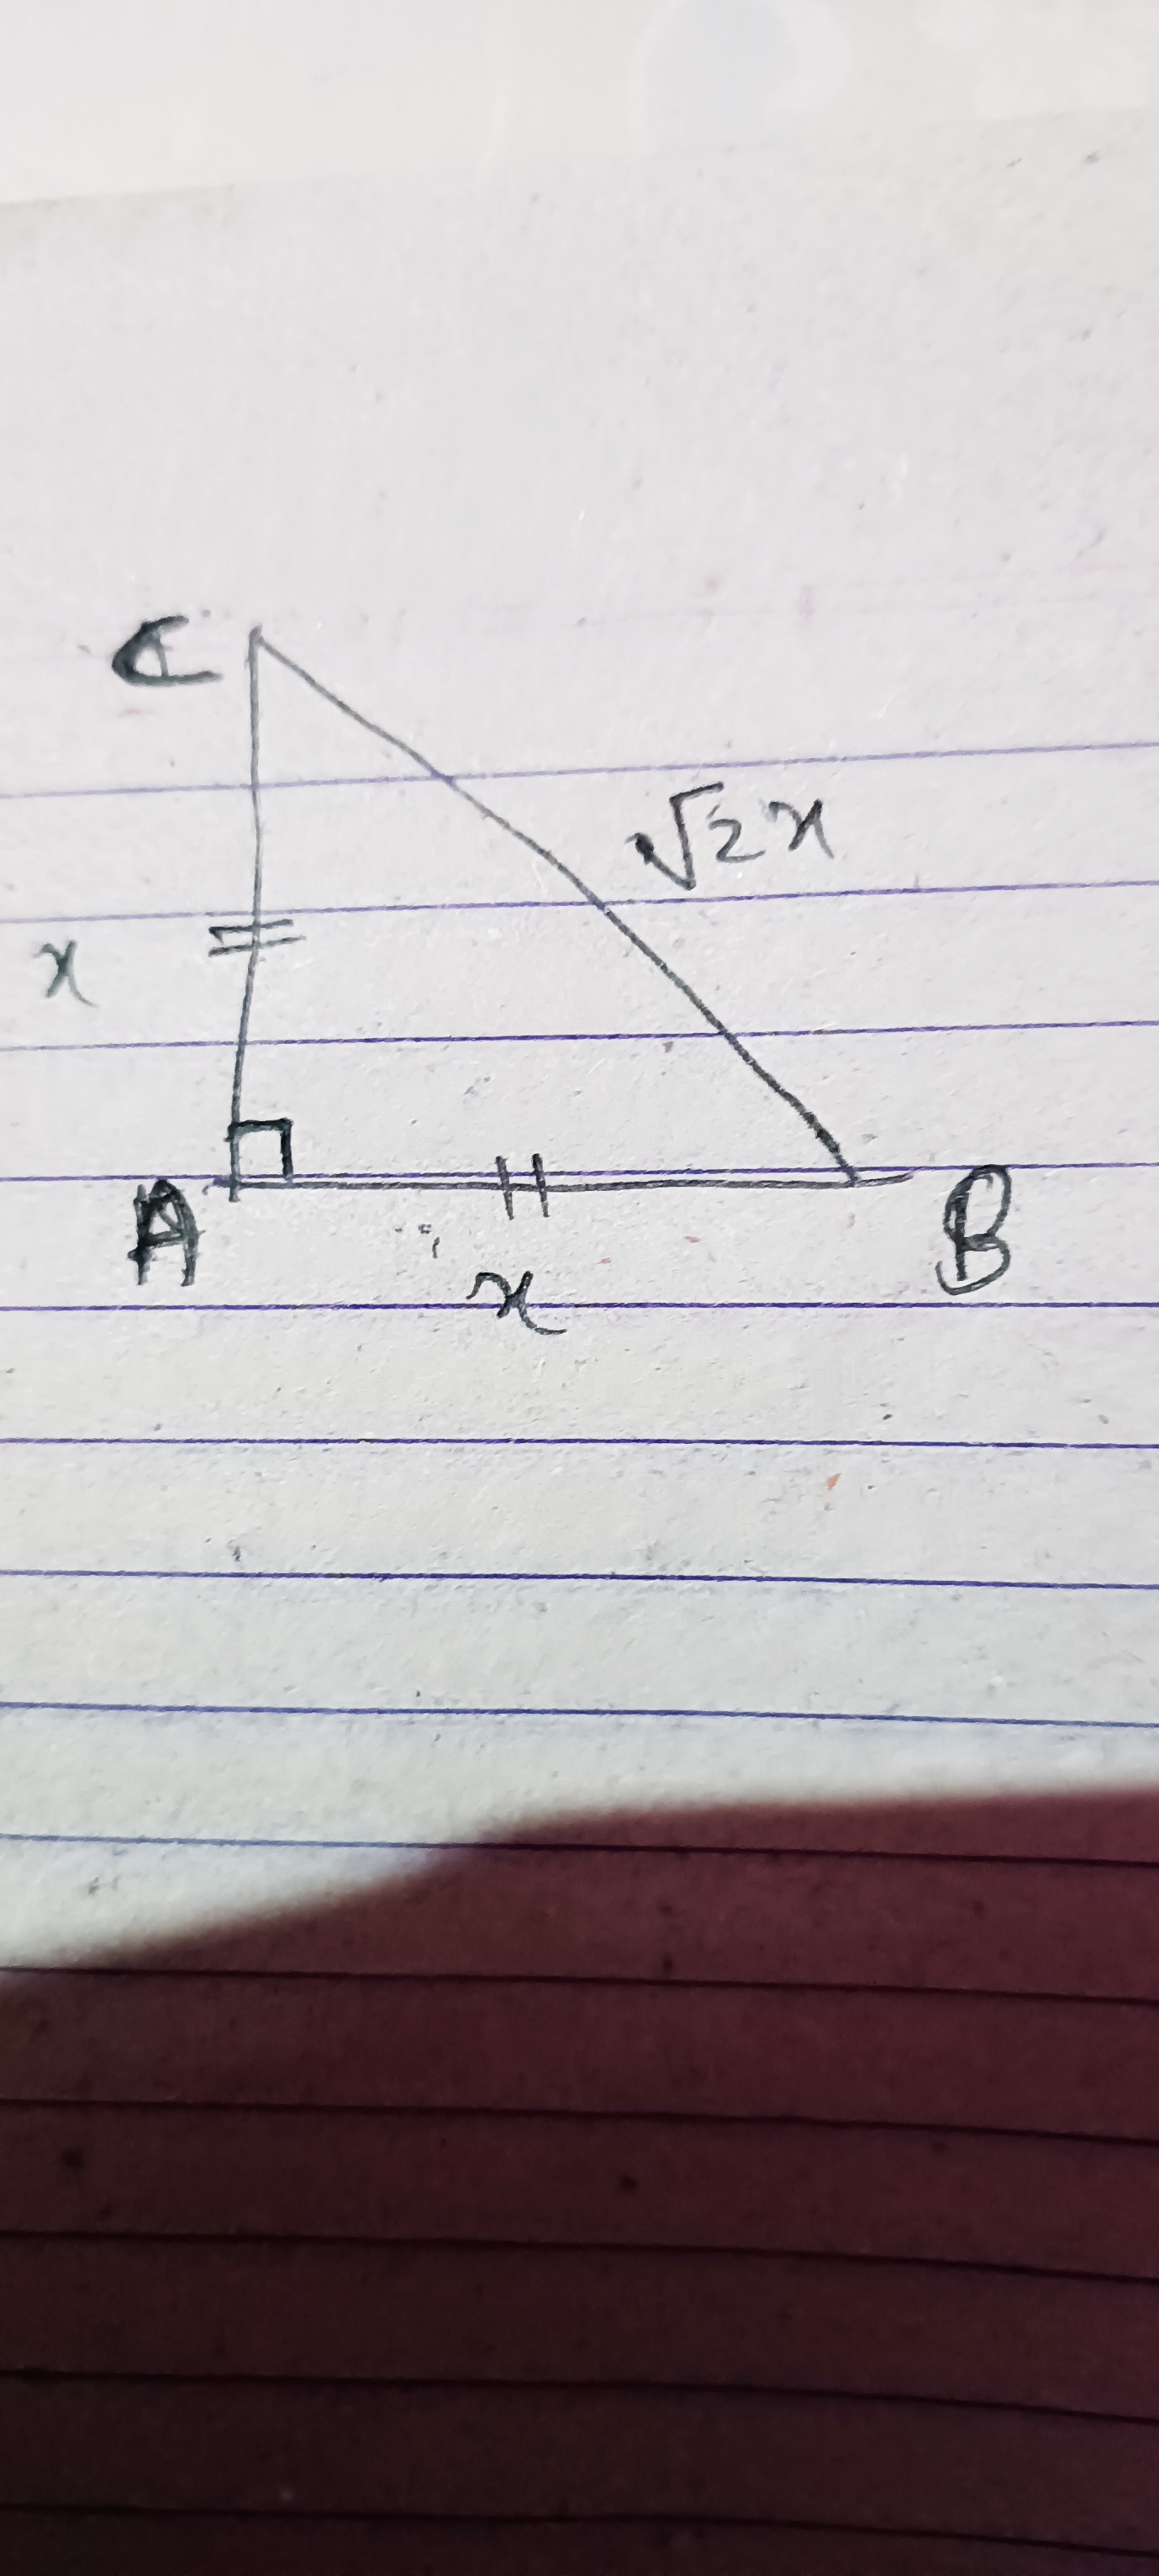 C
√2x
x
A
B
x